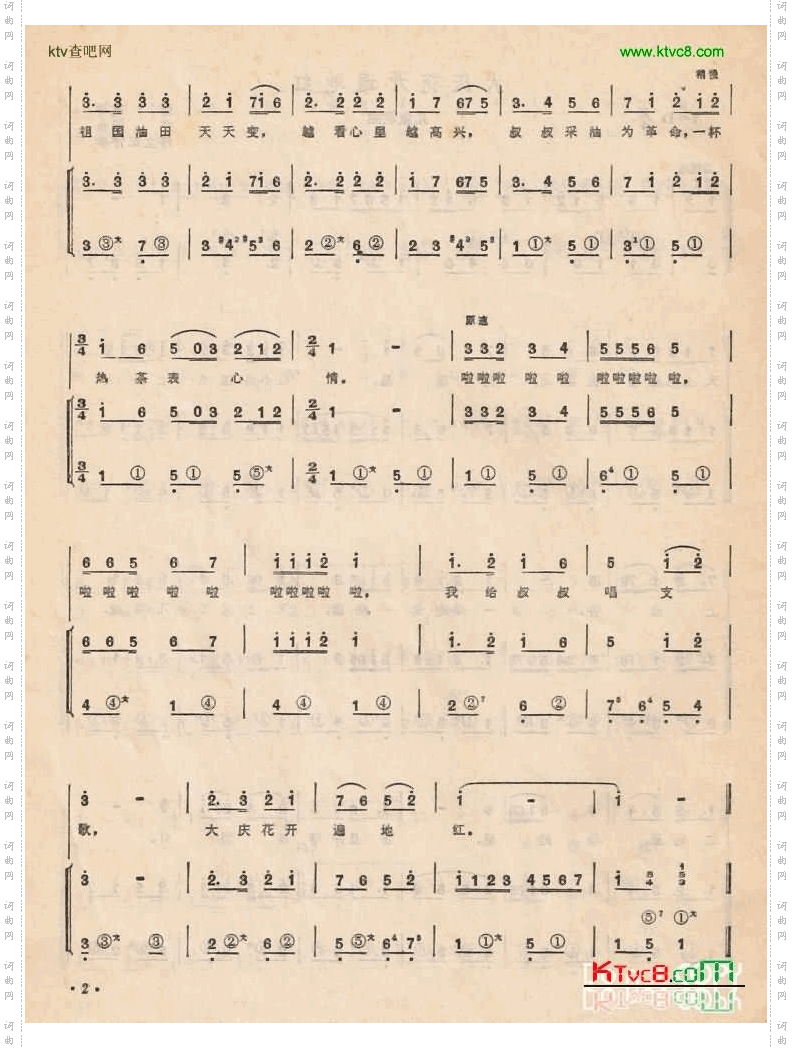 ktv查吧网 www.ktvc8.com
稍慢
3. 3 3 3 | 2 1 71 6 | 2. 2 2 2 | 1 7 67 5 | 3. 4 5 6 | 7 1 2 12 |
祖 国 油 田 天 天 变， 越 看 心 里 越 高 兴， 叔 叔 采 油 为 革 命，一 杯
3. 3 3 3 | 2 1 71 6 | 2. 2 2 2 | 1 7 67 5 | 3. 4 5 6 | 7 1 2 12 |
原速
3/4 1 6 5 03 2 12 | 2/4 1 - | 332 3 4 | 5556 5 |
热 茶 表 心 情。 啦啦啦 啦 啦 啦啦啦啦 啦，
3/4 1 6 5 03 2 12 | 2/4 1 - | 332 3 4 | 5556 5 |
3/4 1 ① 5 ① 5 ⑤大 | 2/4 1 ①大 5 ① | 1 ① 5 ① | 6⁴ ① 5 ① |
6 6 5 6 7 | 1112 1 | 1. 2 1 6 | 5 12 |
啦 啦 啦 啦 啦 啦啦啦啦 啦， 我 给 叔 叔 唱 支
6 6 5 6 7 | 1112 1 | 1. 2 1 6 | 5 12 |
4 ④大 1 ④ | 4 ④ 1 ④ | 2 ②⁷ 6 ② | 7³ 6⁴ 5 4 |
3 - | 2. 3 2 1 | 7 6 5 2 | 1 - | 1 - ‖
歌， 大 庆 花 开 遍 地 红。
3 - | 2. 3 2 1 | 7 6 5 2 | 1123 4567 | 1
3 ③大 ③ | 2 ②大 6 ② | 5 ⑤大 6⁴ 7³ | 1 ①大 5 ① | 1 5 1 ‖
⑤⁷ ①大
· 2 ·
KTvc8.com
词曲网